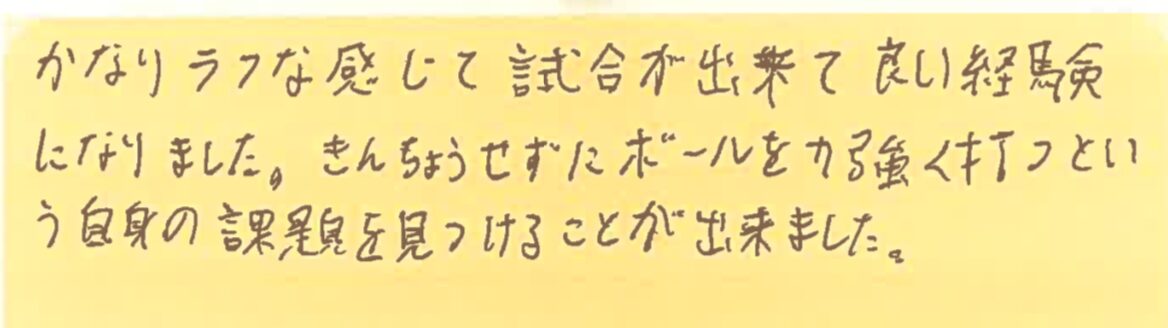 かなりラフな感じて試合が出来て良い経験
になりました。きんちょうせずにボールを力強く打つとい
う自身の課題を見つけることが出来ました。